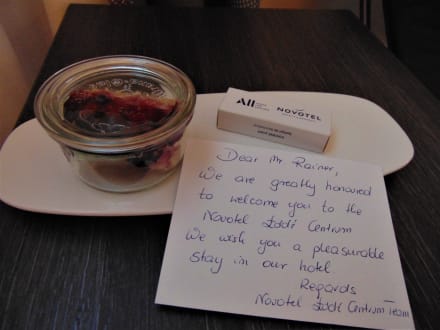 All
NOVOTEL
Dear Mr Rainer,
We are greatly honoured
to welcome you to the
Novotel Łódź Centrum
We wish you a pleasurable
stay in our hotel
Regards
Novotel Łódź Centrum Team